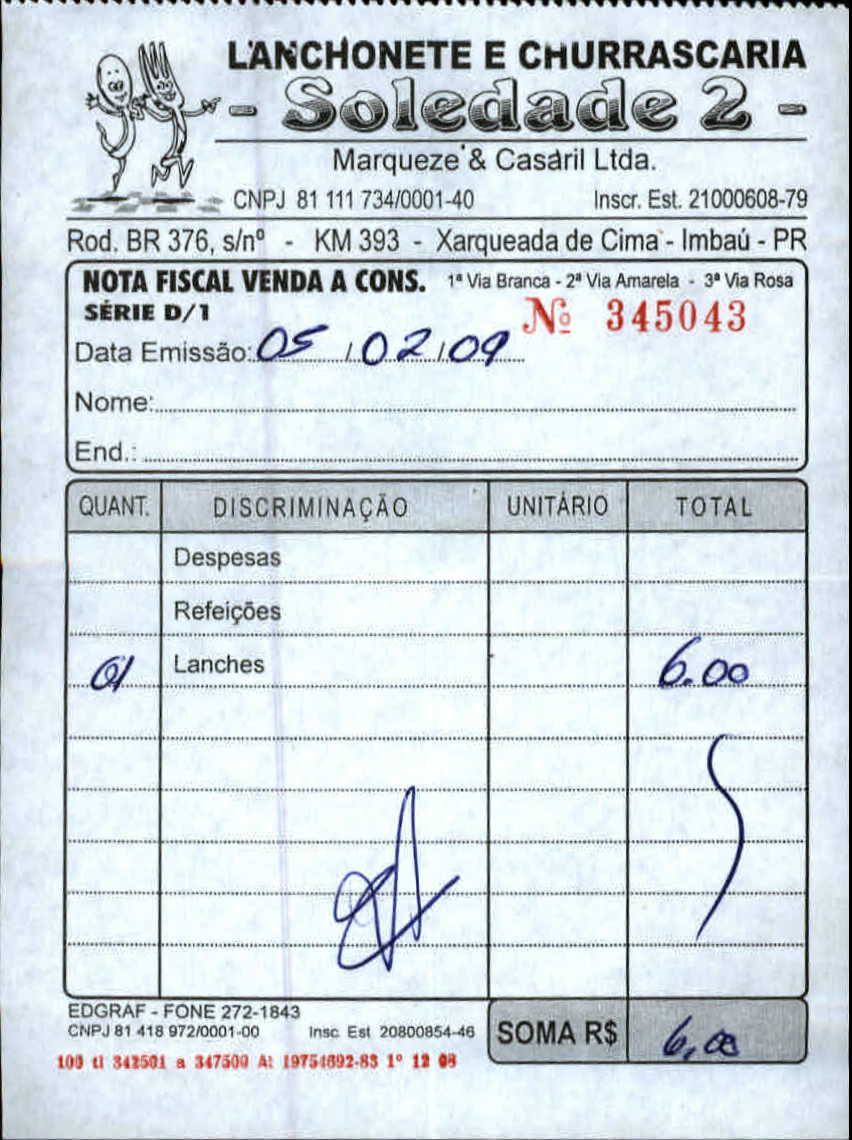 LANCHONETE E CHURRASCARIA
- Soledade 2 -
Marqueze & Casaril Ltda.
CNPJ 81 111 734/0001-40 Inscr. Est. 21000608-79
Rod. BR 376, s/nº - KM 393 - Xarqueada de Cima - Imbaú - PR
NOTA FISCAL VENDA A CONS. 1ª Via Branca - 2ª Via Amarela - 3ª Via Rosa
SÉRIE D/1 Nº 345043
Data Emissão: 05 / 02 / 09
Nome:
End.:
QUANT. DISCRIMINAÇÃO UNITÁRIO TOTAL
Despesas
Refeições
01 Lanches 6.00
EDGRAF - FONE 272-1843
CNPJ 81 418 972/0001-00 Insc Est 20800854-46
SOMA R$ 6,00
100 tl 342501 a 347500 At 19754692-83 1º 12 08